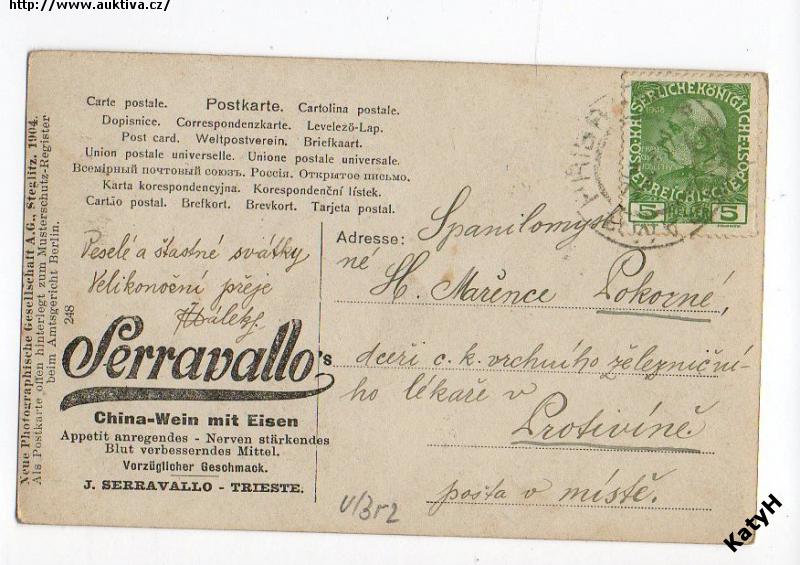 http://www.auktiva.cz/
Carte postale. Postkarte. Cartolina postale.
Dopisnice. Correspondenzkarte. Levelező-Lap.
Post card. Weltpostverein. Briefkaart.
Union postale universelle. Unione postale universale.
Всемірный почтовый союзъ. Россія. Открытое письмо.
Karta korespondencyjna. Korespondenční lístek.
Cartão postal. Brefkort. Brevkort. Tarjeta postal.
Neue Photographische Gesellschaft A.G., Steglitz. 1904.
Als Postkarte offen hinterlegt zum Musterschutz-Register
beim Amtsgericht Berlin.
248
Veselé a šťastné svátky
Velikonoční přeje
Serravallo's
China-Wein mit Eisen
Appetit anregendes - Nerven stärkendes
Blut verbesserndes Mittel.
Vorzüglicher Geschmack.
J. SERRAVALLO - TRIESTE.
KAISERLICHEKÖNIGLICHE
ÖSTERREICHISCHE POST
1908
5 HELLER 5
Adresse:
Spanilomysl
né
Sl. Mařence Pokorné,
dceři c. k. vrchního železniční-
ho lékaře v
Protivíně
pošta v místě.
KatyH